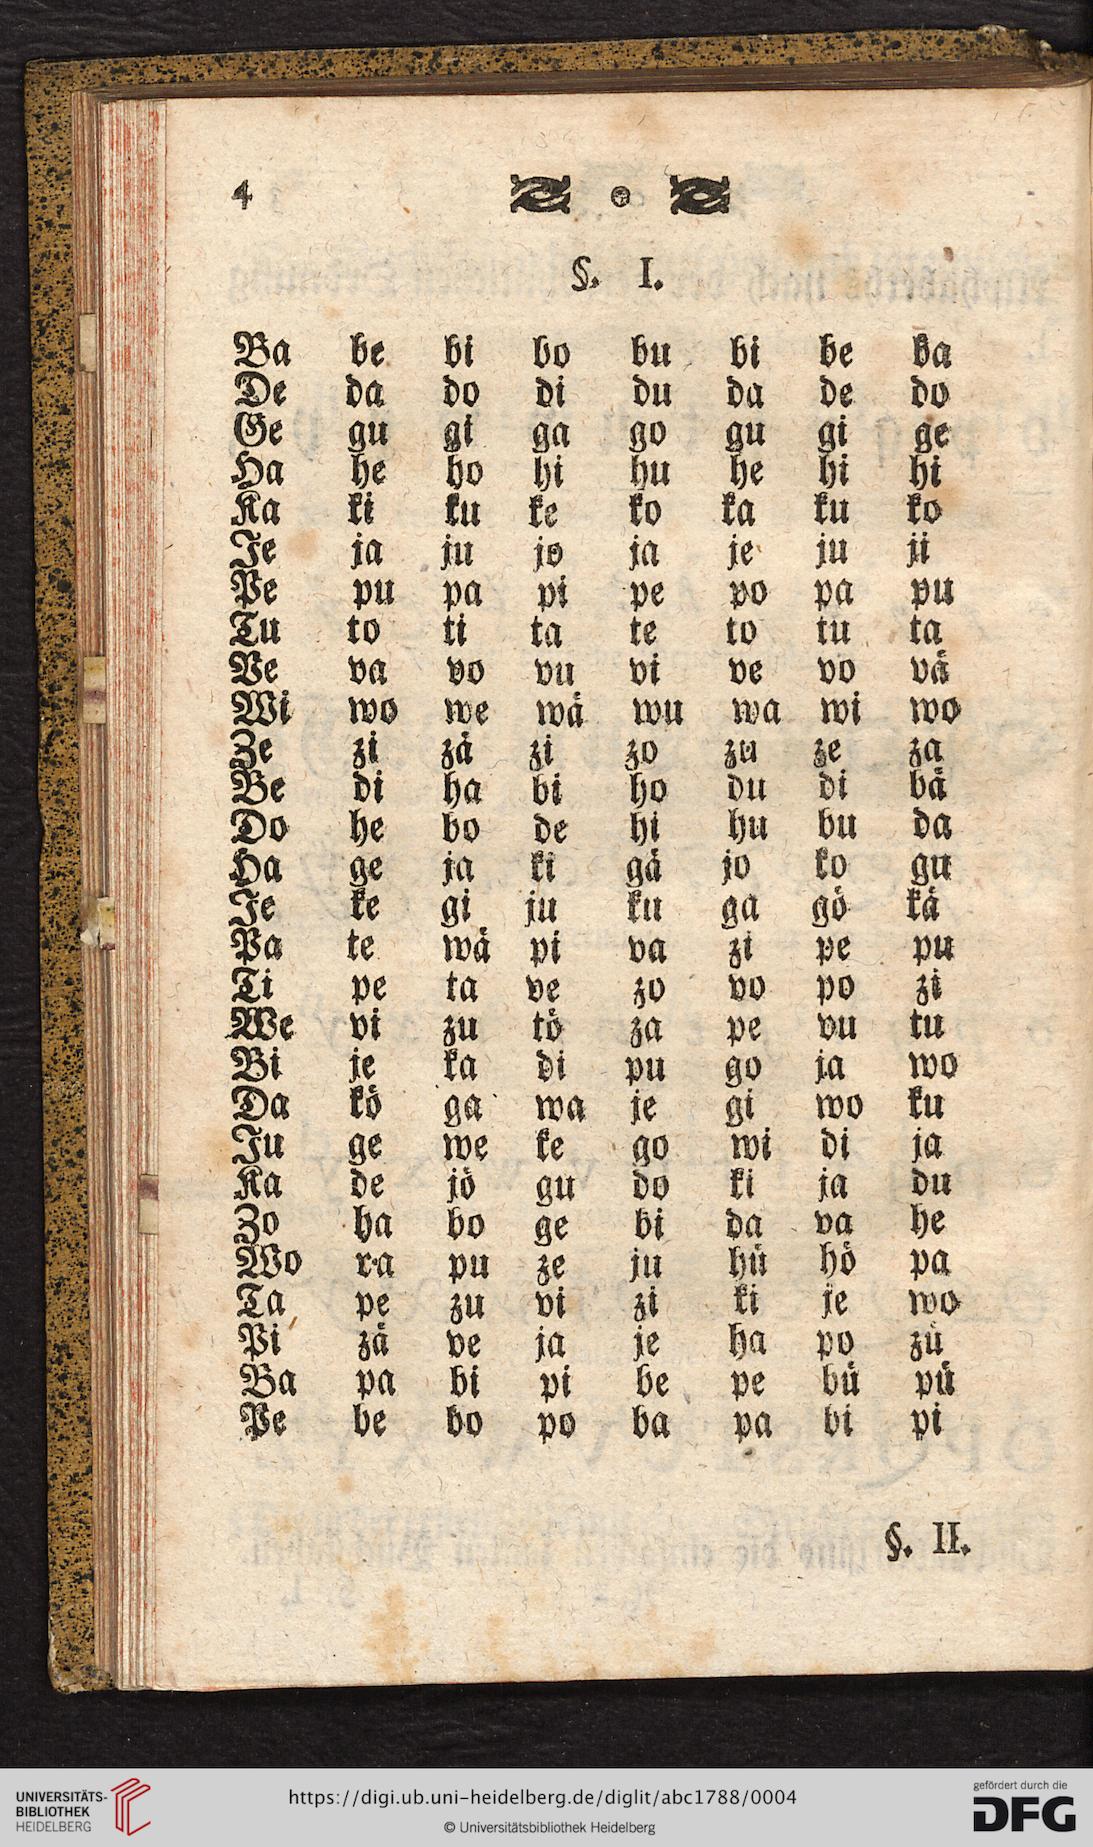 4
§. I.
Ba be bi bo bu bi be ba
De da do di du da de do
Ge gu gi ga go gu gi ge
Ha he ho hi hu he hi hi
Ka ki ku ke ko ka ku ko
Je ja ju jo ja je ju ji
Pe pu pa pi pe po pa pu
Tu to ti ta te to tu ta
Ve va vo vu vi ve vo vä
Wi wo we wä wu wa wi wo
Ze zi zä zi zo zu ze za
Be di ha bi ho du di bä
Do he bo de hi hu bu da
Ha ge ja ki gä jo ko gu
Je ke gi ju ku ga gö kä
Pa te wä pi va zi pe pu
Ti pe ta ve zo vo po zi
We vi zu tö za pe vu tu
Bi je ka di pu go ja wo
Da kö ga wa je gi wo ku
Ju ge we ke go wi di ja
Ka de jö gu do ki ja du
Zo ha bo ge bi da va he
Wo ra pu ze ju hü hö pa
Ta pe zu vi zi ki je wo
Pi zä ve ja je ha po zü
Ba pa bi pi be pe bü pü
Pe be bo po ba pa bi pi
§. II.
UNIVERSITÄTS-
BIBLIOTHEK
HEIDELBERG
https://digi.ub.uni-heidelberg.de/diglit/abc1788/0004
© Universitätsbibliothek Heidelberg
gefördert durch die
DFG